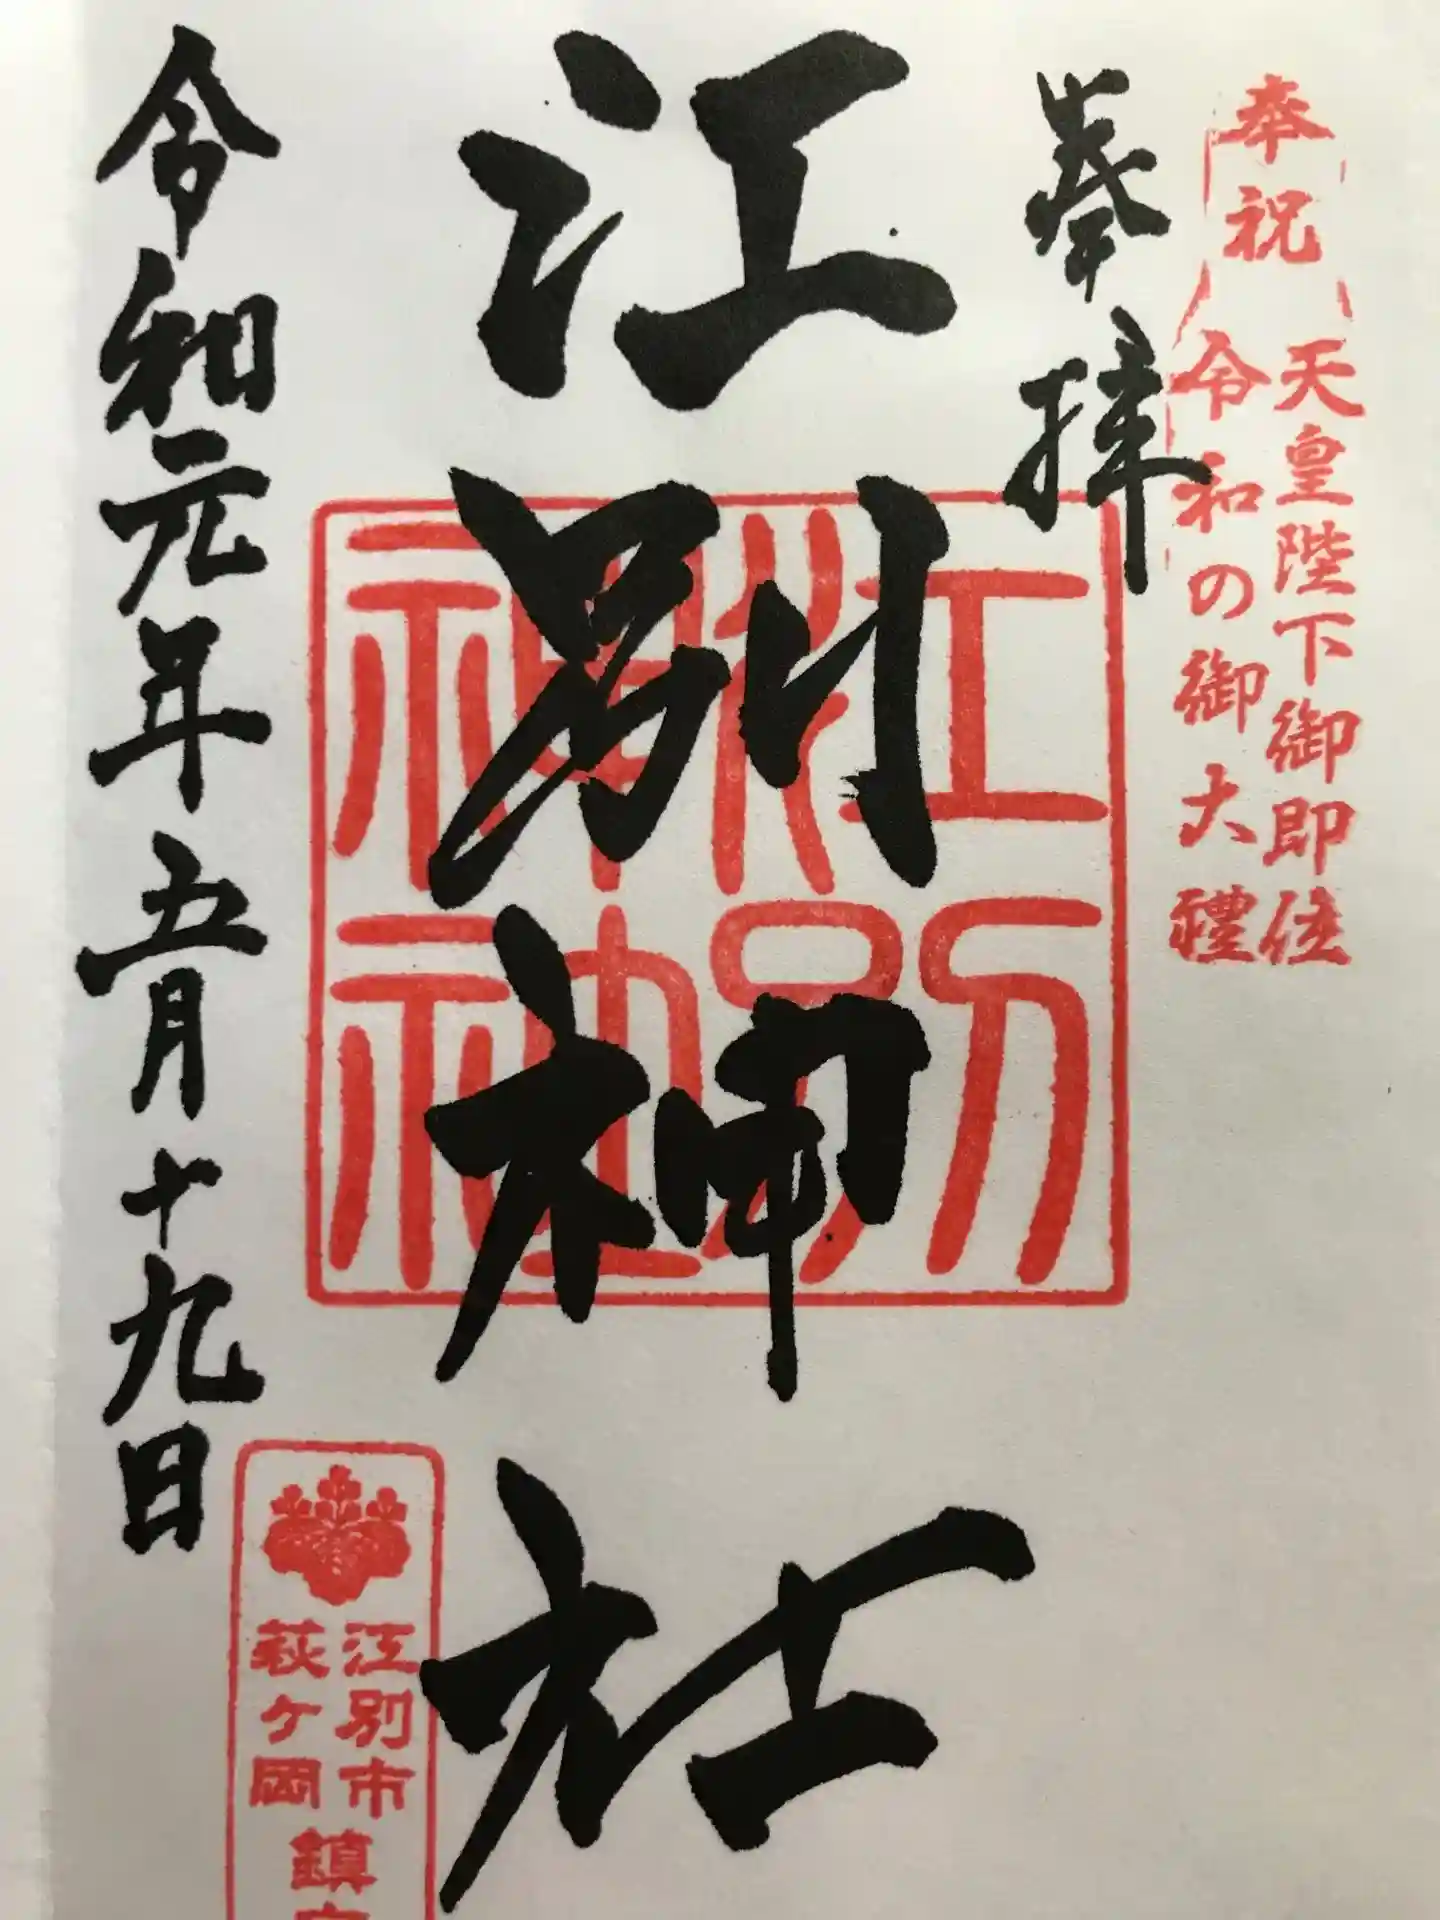 奉祝
天皇陛下御即位
令和の御大禮
奉拝
江別神社
江別
神社
令和元年五月十九日
江別市
萩ヶ岡
鎮